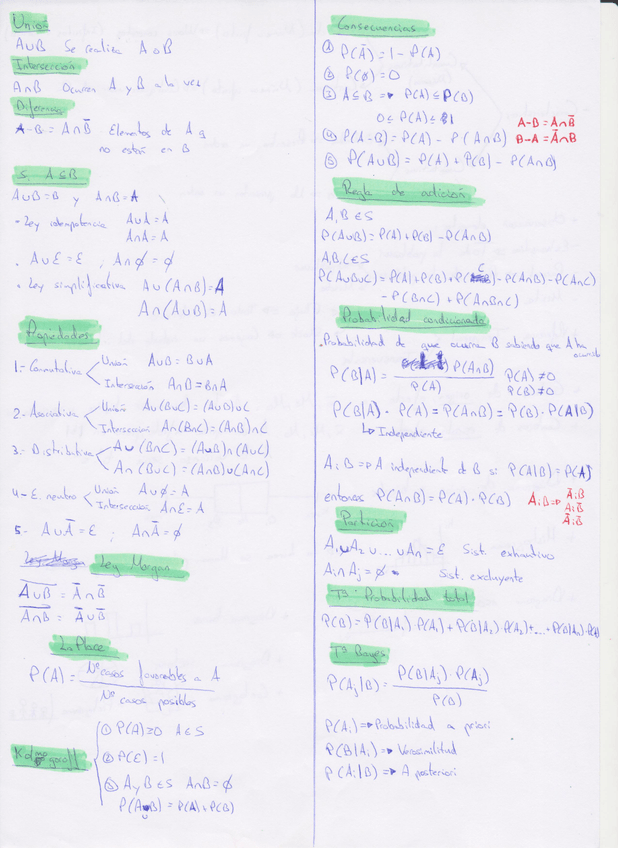 Unión
A∪B Se realiza A o B
Intersección
A∩B Ocurren A y B a la vez
Diferencia
A-B = A∩B̄ Elementos de A q
no están en B
Si A⊆B
A∪B=B y A∩B=A
- Ley idempotencia A∪A=A
A∩A=A
. A∪E=E ; A∩∅=∅
. Ley simplificativa A∪(A∩B)=A
A∩(A∪B)=A
Propiedades
1.- Conmutativa Unión A∪B=B∪A
Intersección A∩B=B∩A
2.- Asociativa Unión A∪(B∪C)=(A∪B)∪C
Intersección A∩(B∩C)=(A∩B)∩C
3.- Distributiva A∪(B∩C)=(A∪B)∩(A∪C)
A∩(B∪C)=(A∩B)∪(A∩C)
4.- E. neutro Unión A∪∅=A
Intersección A∩E=A
5.- A∪Ā=E ; A∩Ā=∅
Ley Morgan
(A∪B)‾ = Ā∩B̄
(A∩B)‾ = Ā∪B̄
La Place
P(A)= Nº casos favorables a A
Nº casos posibles
Kolmogoroff
① P(A)≥0 A∈S
② P(E)=1
③ A y B∈S A∩B=∅
P(A∪B)=P(A)+P(B)
Consecuencias
① P(Ā)=1-P(A)
② P(∅)=0
③ A⊆B → P(A)≤P(B)
0≤P(A)≤1
④ P(A-B)=P(A)-P(A∩B)
A-B=A∩B̄
B-A=Ā∩B
⑤ P(A∪B)=P(A)+P(B)-P(A∩B)
Regla de adición
A,B∈S
P(A∪B)=P(A)+P(B)-P(A∩B)
A,B,C∈S
P(A∪B∪C)=P(A)+P(B)+P(C)-P(A∩B)-P(A∩C)
-P(B∩C)+P(A∩B∩C)
Probabilidad condicionada
. Probabilidad de que ocurra B sabiendo que A ha
ocurrido
P(B|A)= P(A∩B)
P(A)
P(A)≠0
P(B)≠0
P(B|A)·P(A)=P(A∩B)=P(B)·P(A|B)
↳ Independiente
A¡B → A independiente de B si P(A|B)=P(A)
entonces P(A∩B)=P(A)·P(B)
A¡B → Ā¡B
A¡B̄
Ā¡B̄
Partición
A₁∪A₂∪...∪Aₙ=E Sist. exhaustivo
Aᵢ∩Aⱼ=∅ Sist. excluyente
Tª: Probabilidad total
P(B)=P(B|A₁)·P(A₁)+P(B|A₂)·P(A₂)+...+P(B|Aₙ)·P(Aₙ)
Tª Bayes
P(Aⱼ|B)= P(B|Aⱼ)·P(Aⱼ)
P(B)
P(Aᵢ) → Probabilidad a priori
P(B|Aᵢ) → Verosimilitud
P(Aᵢ|B) → A posteriori